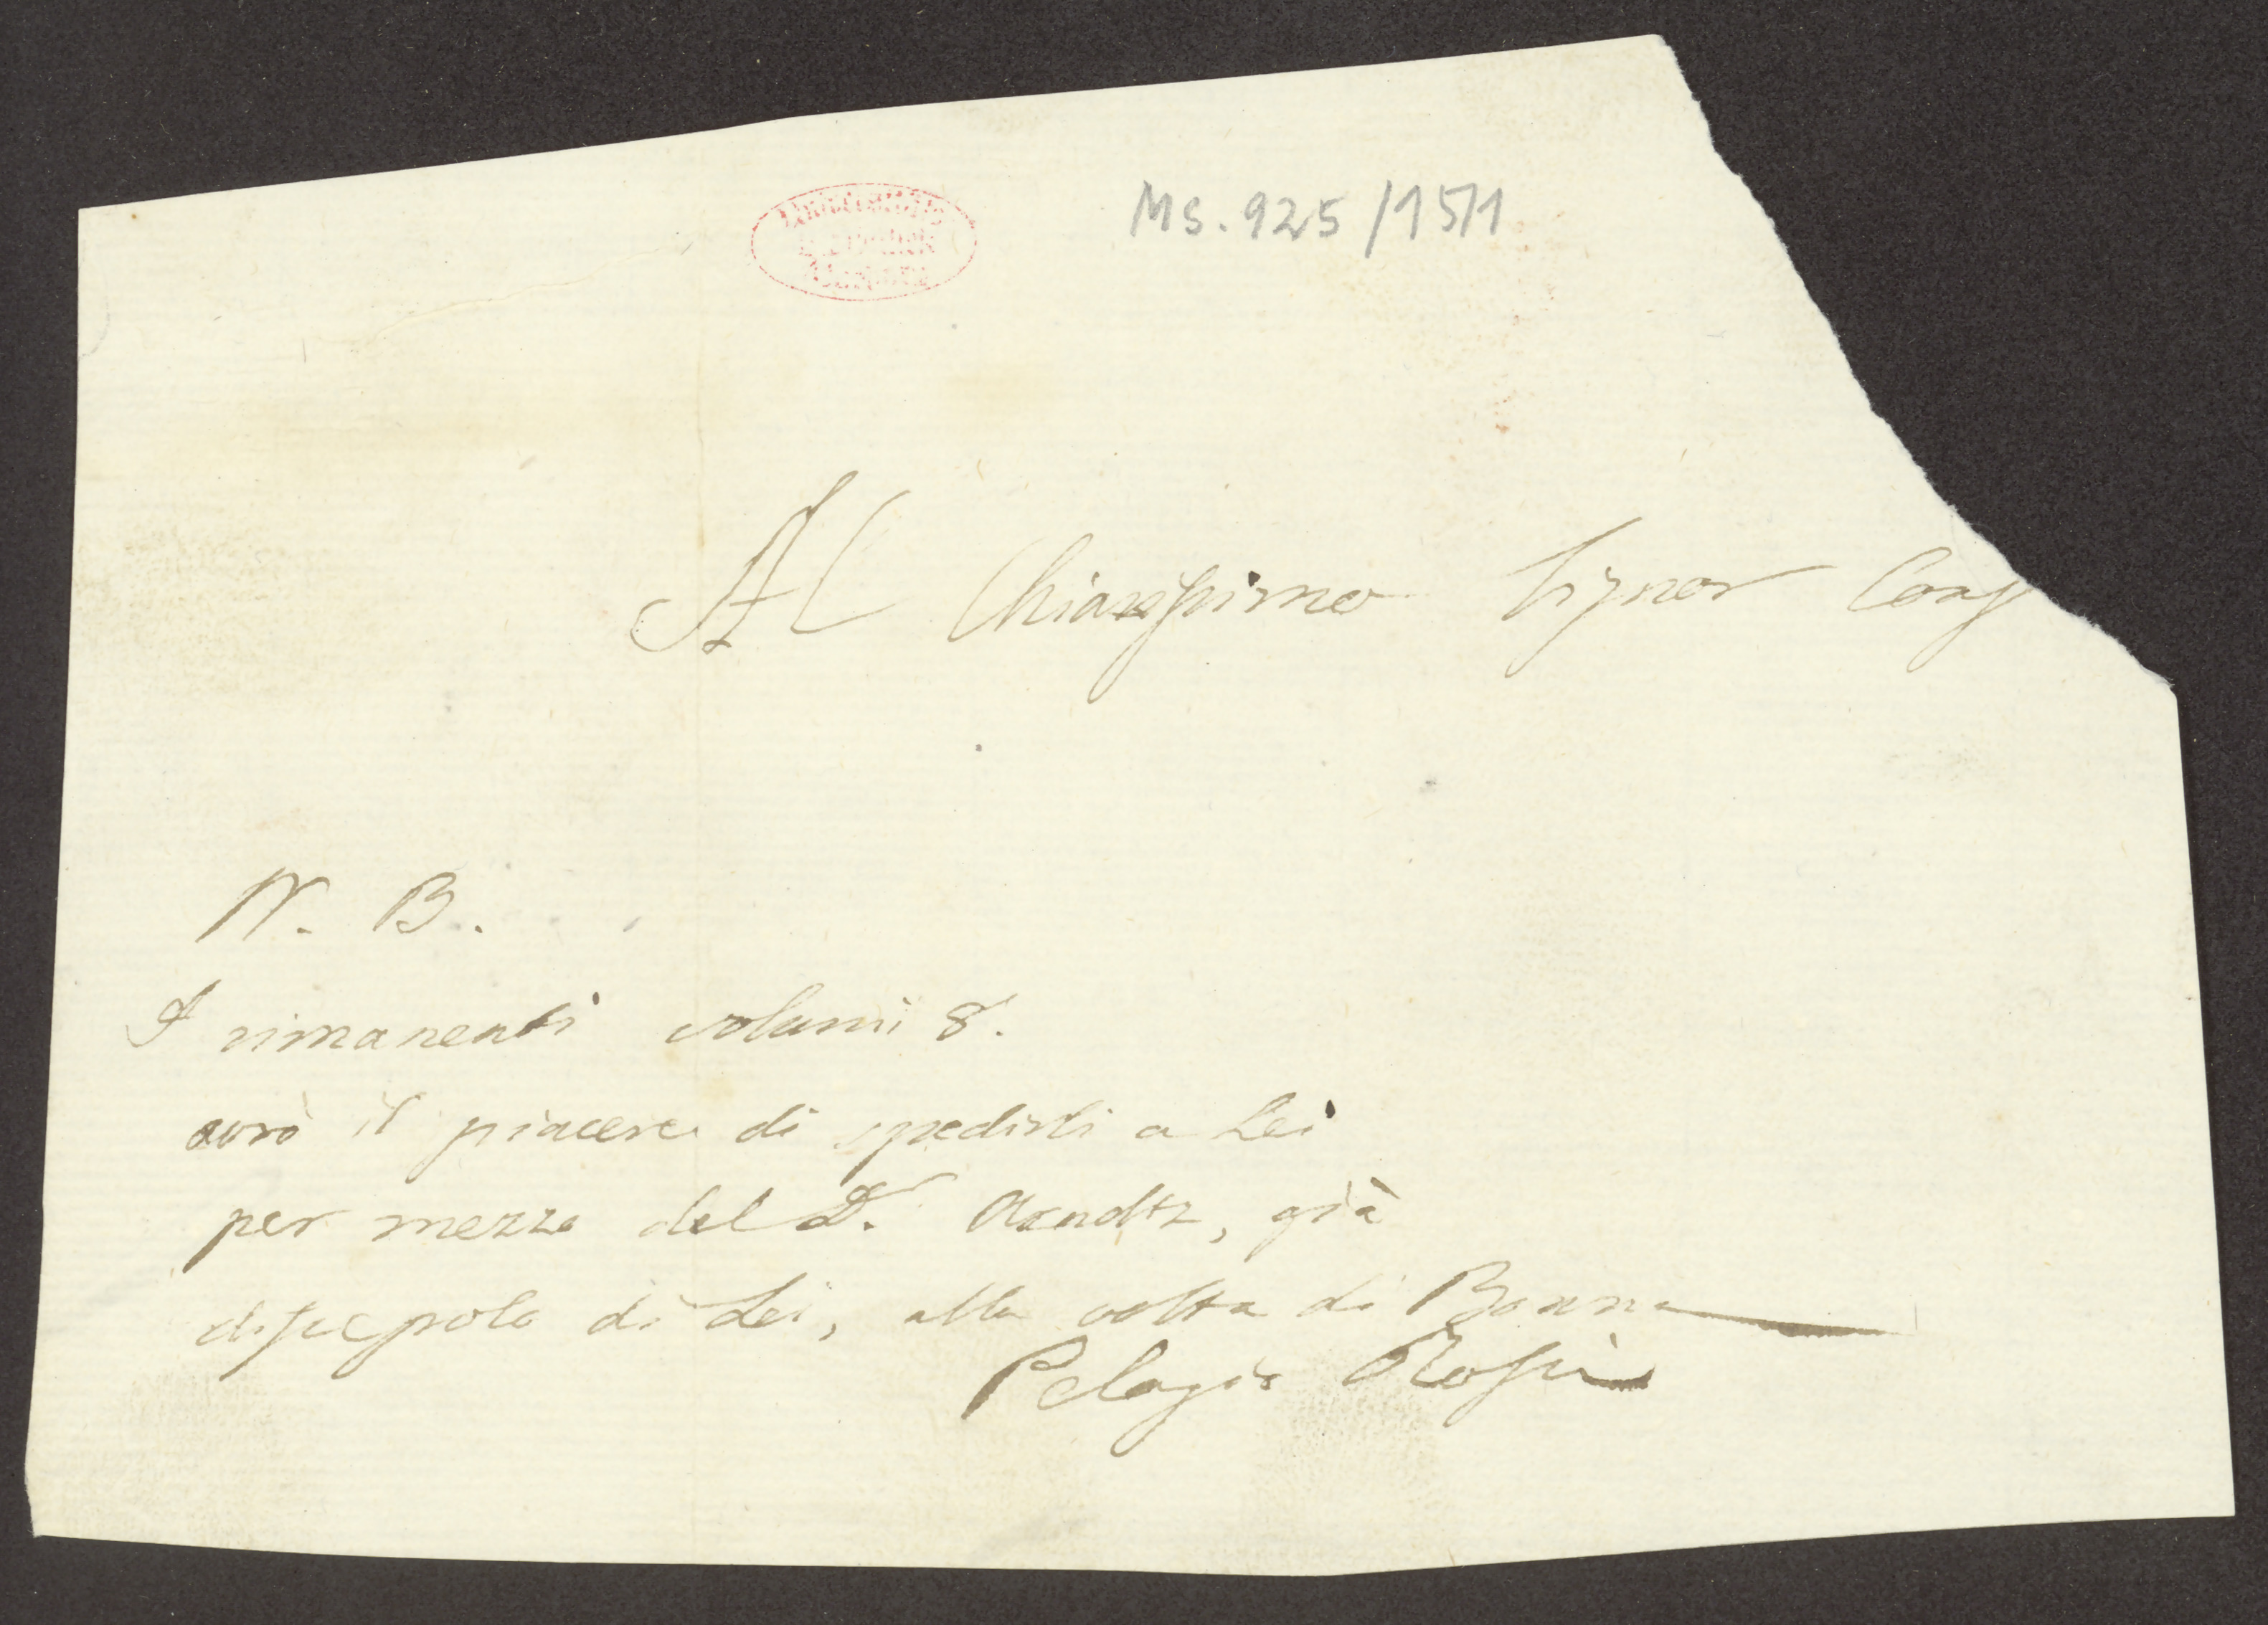 Universitäts
Bibliothek
Marburg
Ms. 925/1571
Al Chiarissimo Signor Cons
N. B.
I rimanenti volumi 8.
avrò il piacere di spedirli a Lei
per mezzo del Dr. Arndtz, già
discepolo di Lei, alla volta di Bonna
Pelagio Rossi